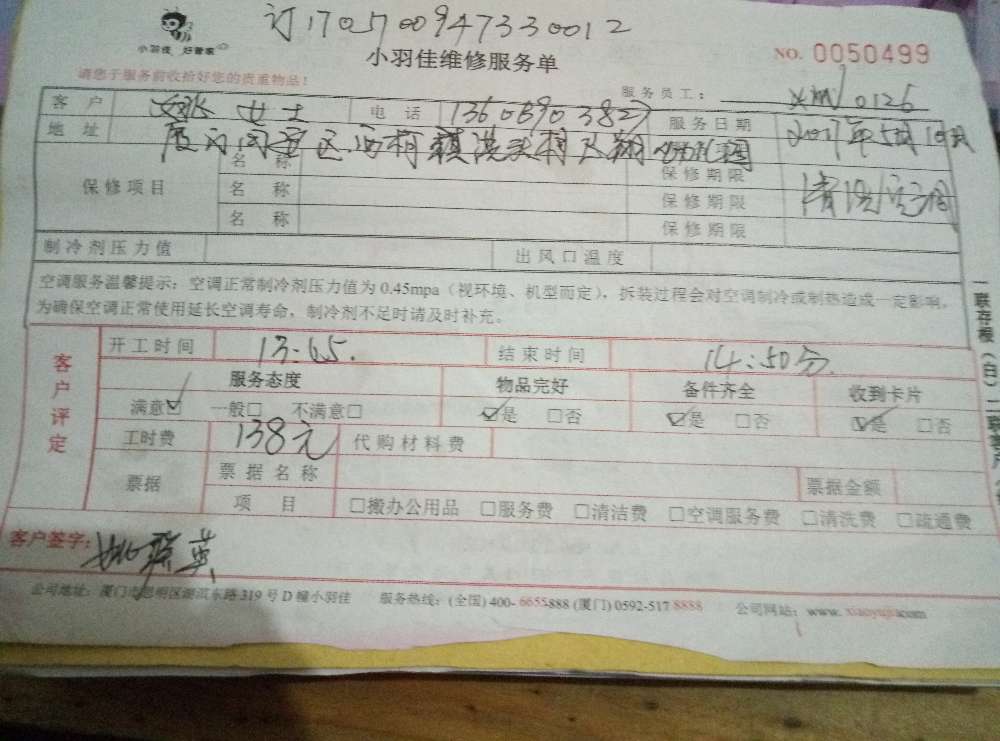 订1705700947330012
小羽佳 好管家
小羽佳维修服务单
NO. 0050499
请您于服务前收拾好您的贵重物品！
服务员工： XMN0126
客 户 姚女士 电 话 13606903827 服务日期 2017年5月19日
地 址 厦门同安区西柯镇洪头村飞翔
名 称 保修期限
保修项目 名 称 保修期限 清洗空调
名 称 保修期限
制冷剂压力值 出风口温度
空调服务温馨提示：空调正常制冷剂压力值为 0.45mpa（视环境、机型而定），拆装过程会对空调制冷或制热造成一定影响，
为确保空调正常使用延长空调寿命，制冷剂不足时请及时补充。
客户评定
开工时间 13:65. 结束时间 14:50分
服务态度 物品完好 备件齐全 收到卡片
满意☑ 一般□ 不满意□ ☑是 □否 ☑是 □否 ☑是 □否
工时费 138元 代购材料费
票据 票据名称 票据金额
项 目 □搬办公用品 □服务费 □清洁费 □空调服务费 □清洗费 □疏通费
客户签字：
公司地址：厦门市思明区湖滨东路319号D幢小羽佳 服务热线：(全国) 400- 6655888 (厦门) 0592-517 8888 公司网站：www. xiaoyujia.com
一联存根（白）二联客户